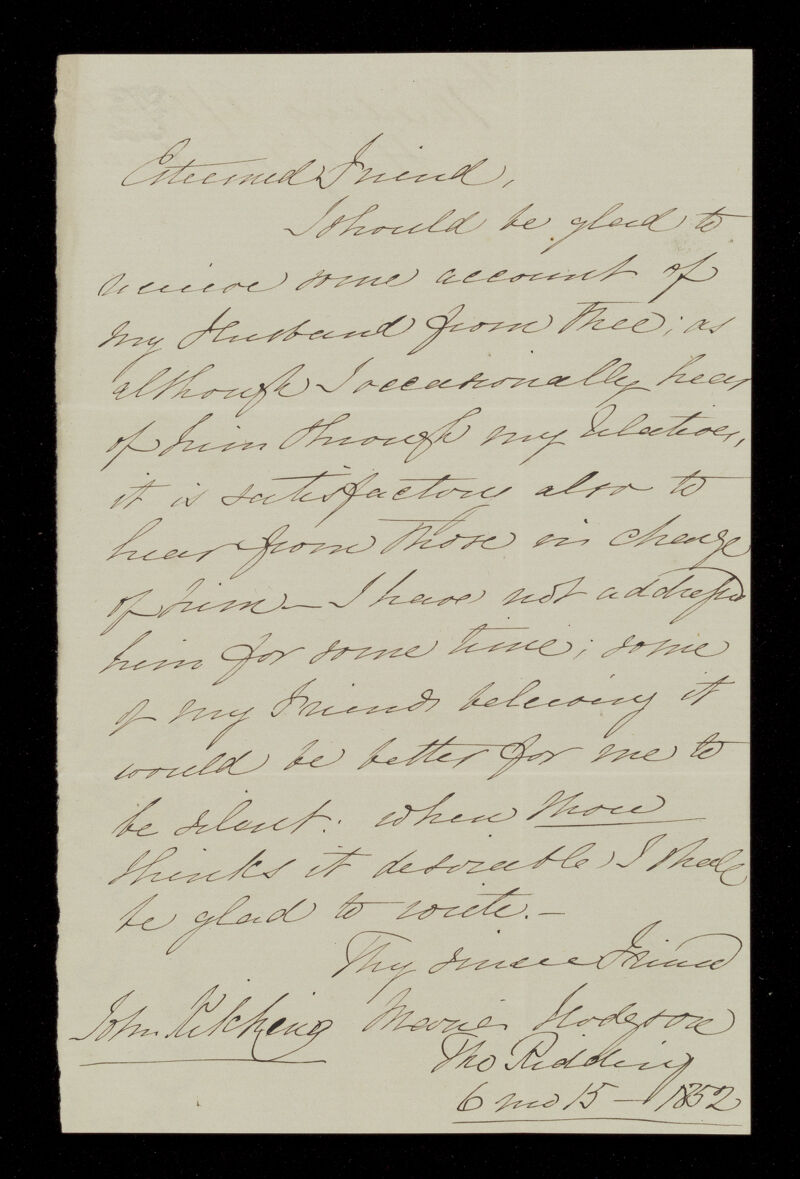 Esteemed Friend,
I should be glad to
receive some account of
my Husband from thee; as
although I occasionally hear
of him through my relatives,
it is satisfactory also to
hear from those in charge
of him — I have not addressed
him for some time; some
of my Friends beleiving it
would be better for me to
be silent: when thou
thinks it desireable, I shall
be glad to write. —
Thy sincere Friend
John Kitching Maria Hodgson
Tho Ridding
6 mo 15 — 1852